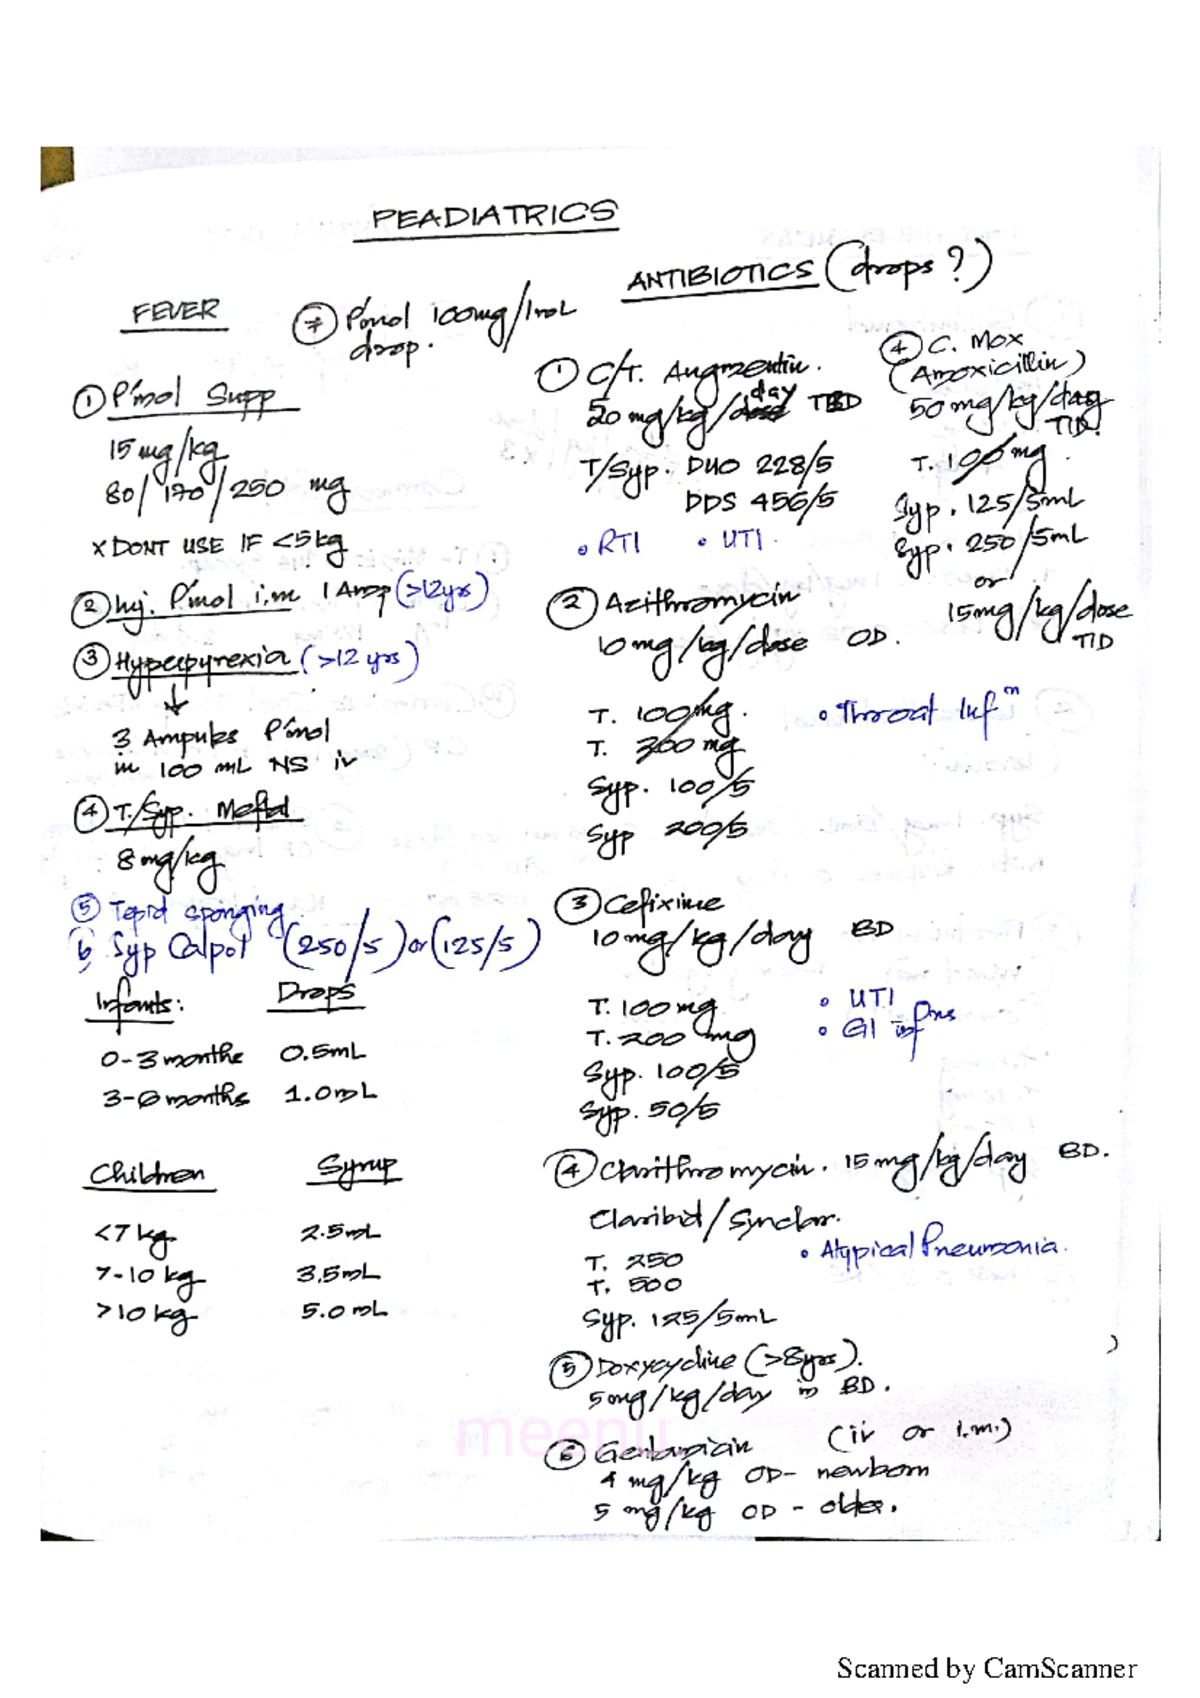 PEADIATRICS
FEVER
⑦ P'mol 100mg/1mL
drop.
① P'mol Supp
15 mg/kg
80/170/250 mg
x DONT USE IF <5kg
② Inj. P'mol i.m 1 Amp (>12yrs)
③ Hyperpyrexia (>12 yrs)
↓
3 Ampules P'mol
in 100 mL NS iv
④ T./Syp. Meftal
8mg/kg
⑤ Tepid sponging
6 Syp Calpol (250/5) or (125/5)
Infants: Drops
0-3 months 0.5mL
3-6 months 1.0mL
Children Syrup
<7 kg 2.5mL
7-10 kg 3.5mL
>10 kg 5.0 mL
ANTIBIOTICS (drops?)
① C/T. Augmentin.
50 mg/kg/day
T/Syp. DUO 228/5
DDS 456/5
• RTI • UTI.
② Azithromycin
10mg/kg/dose OD.
T. 100mg.
T. 200 mg
• Throat Infⁿ
Syp. 100/5
Syp 200/5
③ Cefixime
10mg/kg/day BD
T. 100mg
T. 200 mg
• UTI
• GI infns
Syp. 100/5
Syp. 50/5
④ Clarithromycin. 15mg/kg/day BD.
Claribid/Synclar.
T. 250
T. 500
• Atypical Pneumonia.
Syp. 125/5mL
⑤ Doxycycline (>8yrs).
5mg/kg/day in BD.
⑥ Gentamicin (iv or i.m.)
4 mg/kg OD- newborn
5 mg/kg OD - older.
④ C. Mox
(Amoxicillin)
50mg/kg/day
TID.
T. 100mg
Syp. 125/5mL
Syp. 250/5mL
or
15mg/kg/dose
TID
meenu
Scanned by CamScanner